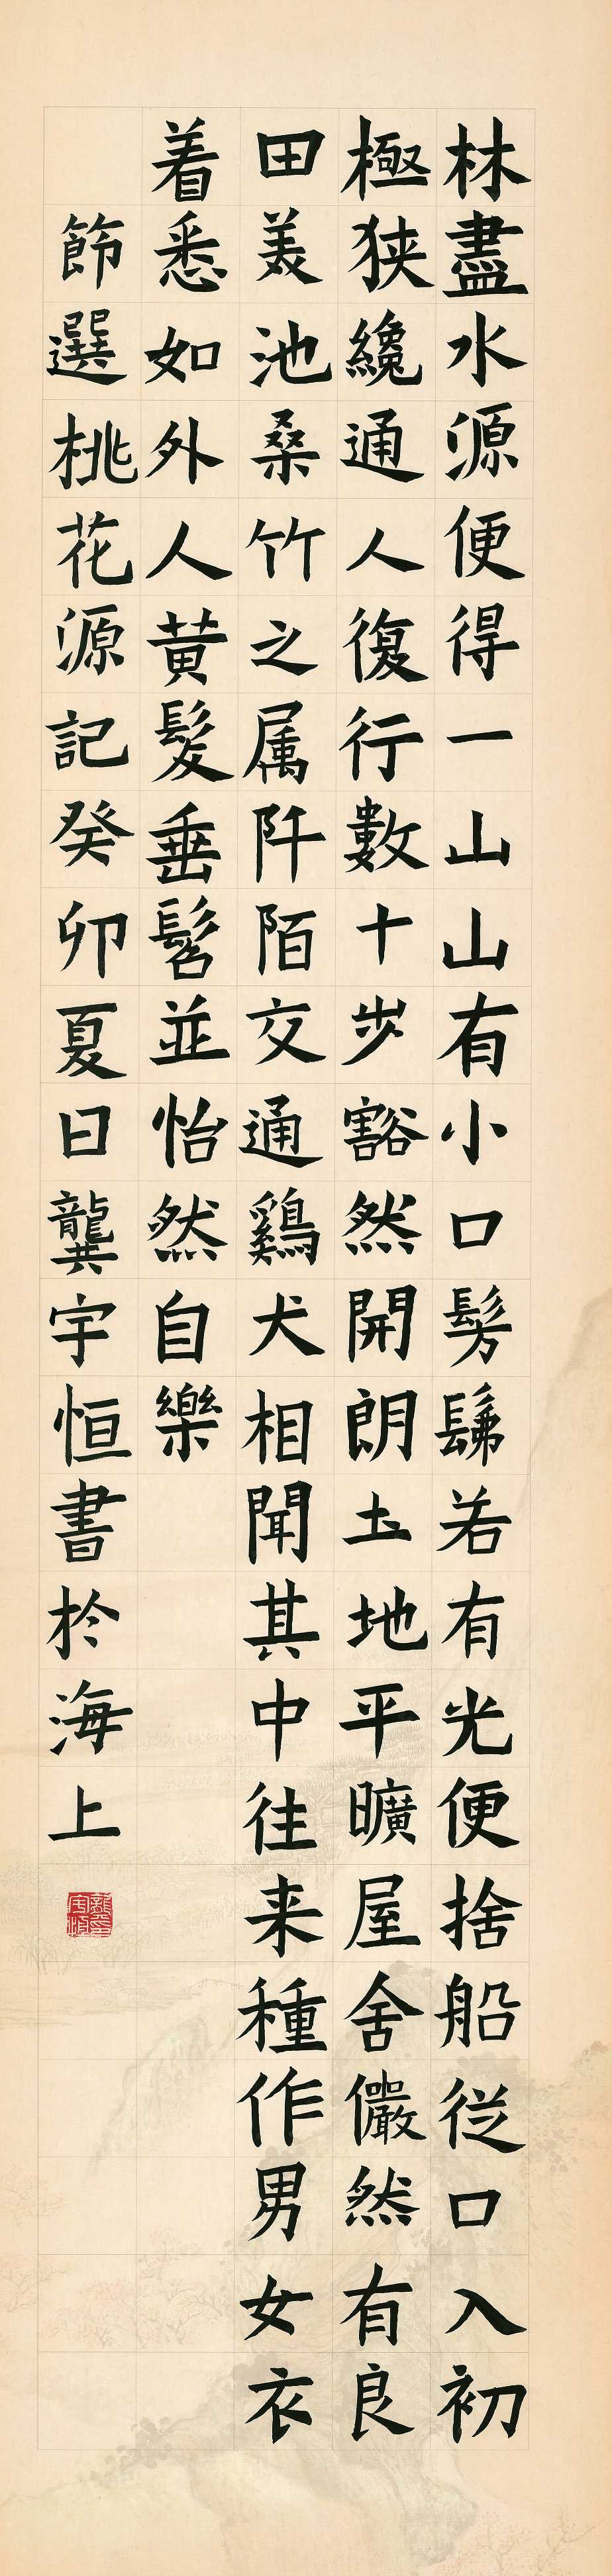 林盡水源便得一山山有小口髣髴若有光便捨船從口入初
極狹纔通人復行數十步豁然開朗土地平曠屋舍儼然有良
田美池桑竹之属阡陌交通鷄犬相聞其中往来種作男女衣
着悉如外人黄髮垂髫並怡然自樂
節選桃花源記癸卯夏日龔宇恒書於海上
龔宇恒印